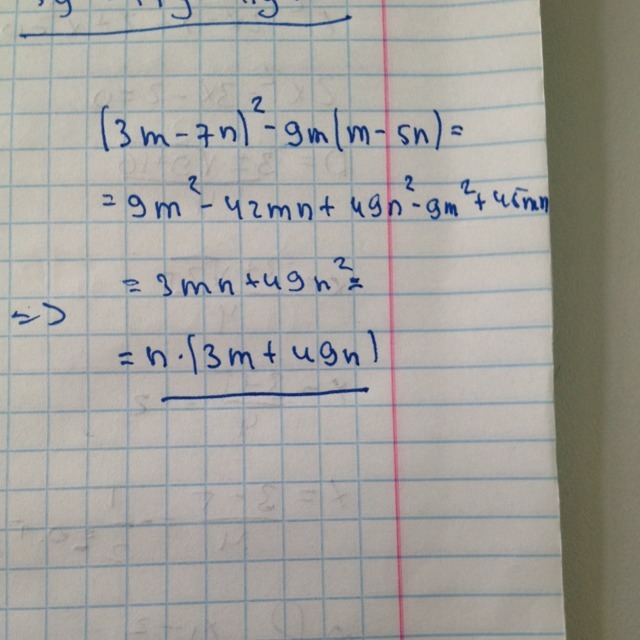 (3m-7n)²-9m(m-5n)=
=9m²-42mn+49n²-9m²+45mn
=3mn+49n²=
=>
=n·(3m+49n)